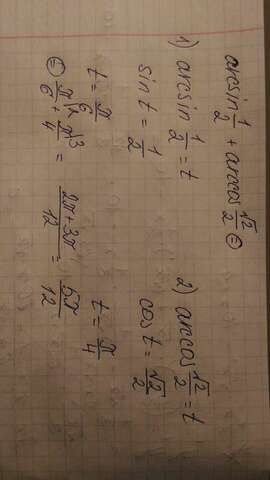 arcsin 1/2 + arccos √2/2 ⊜
1) arcsin 1/2 = t
sin t = 1/2
t = π/6
2) arccos √2/2 = t
cos t = √2/2
t = π/4
⊜ π/6 \2 + π/4 \3 = (2π + 3π)/12 = 5π/12